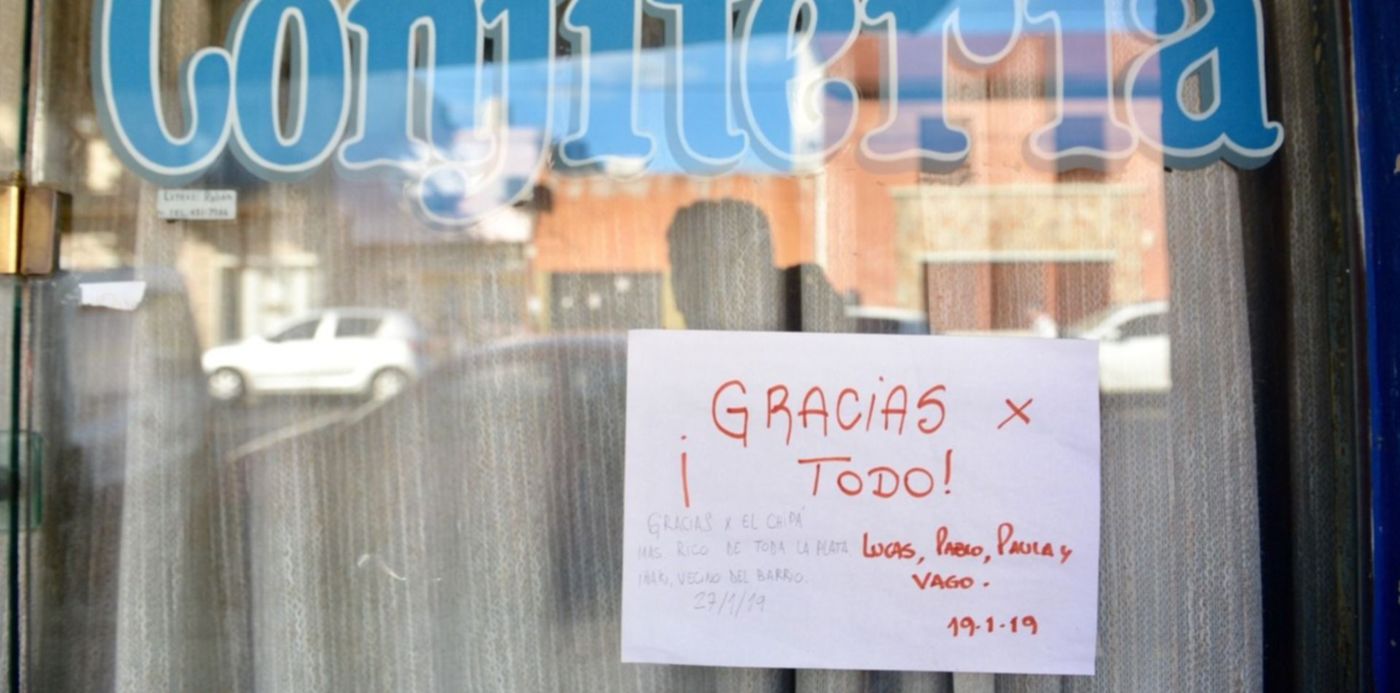 Confiteria
GRACIAS x
¡ TODO!
GRACIAS x EL CHIPÁ
MAS RICO DE TODA LA PLATA.
IÑAKI, VECINO DEL BARRIO.
27/1/19
LUCAS, PABLO, PAULA y
VAGO.
19-1-19